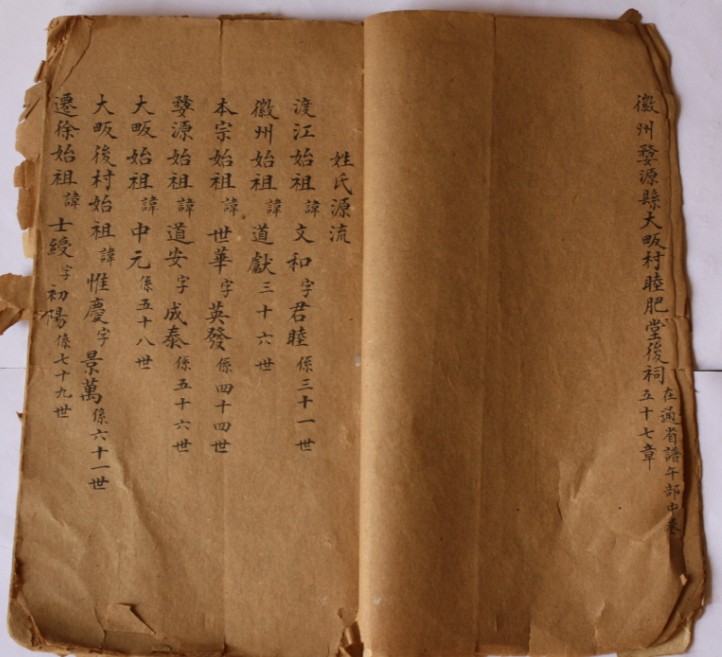 徽州婺源縣大畈村睦肥堂後祠
在通省譜午部中卷
五十七章
姓氏源流
渡江始祖諱文和字君睦係三十一世
徽州始祖諱道獻三十六世
本宗始祖諱世華字英發係四十四世
婺源始祖諱道安字成泰係五十六世
大畈始祖諱中元係五十八世
大畈後村始祖諱惟慶字景萬係六十一世
遷徐始祖諱士綬字初陽係七十九世